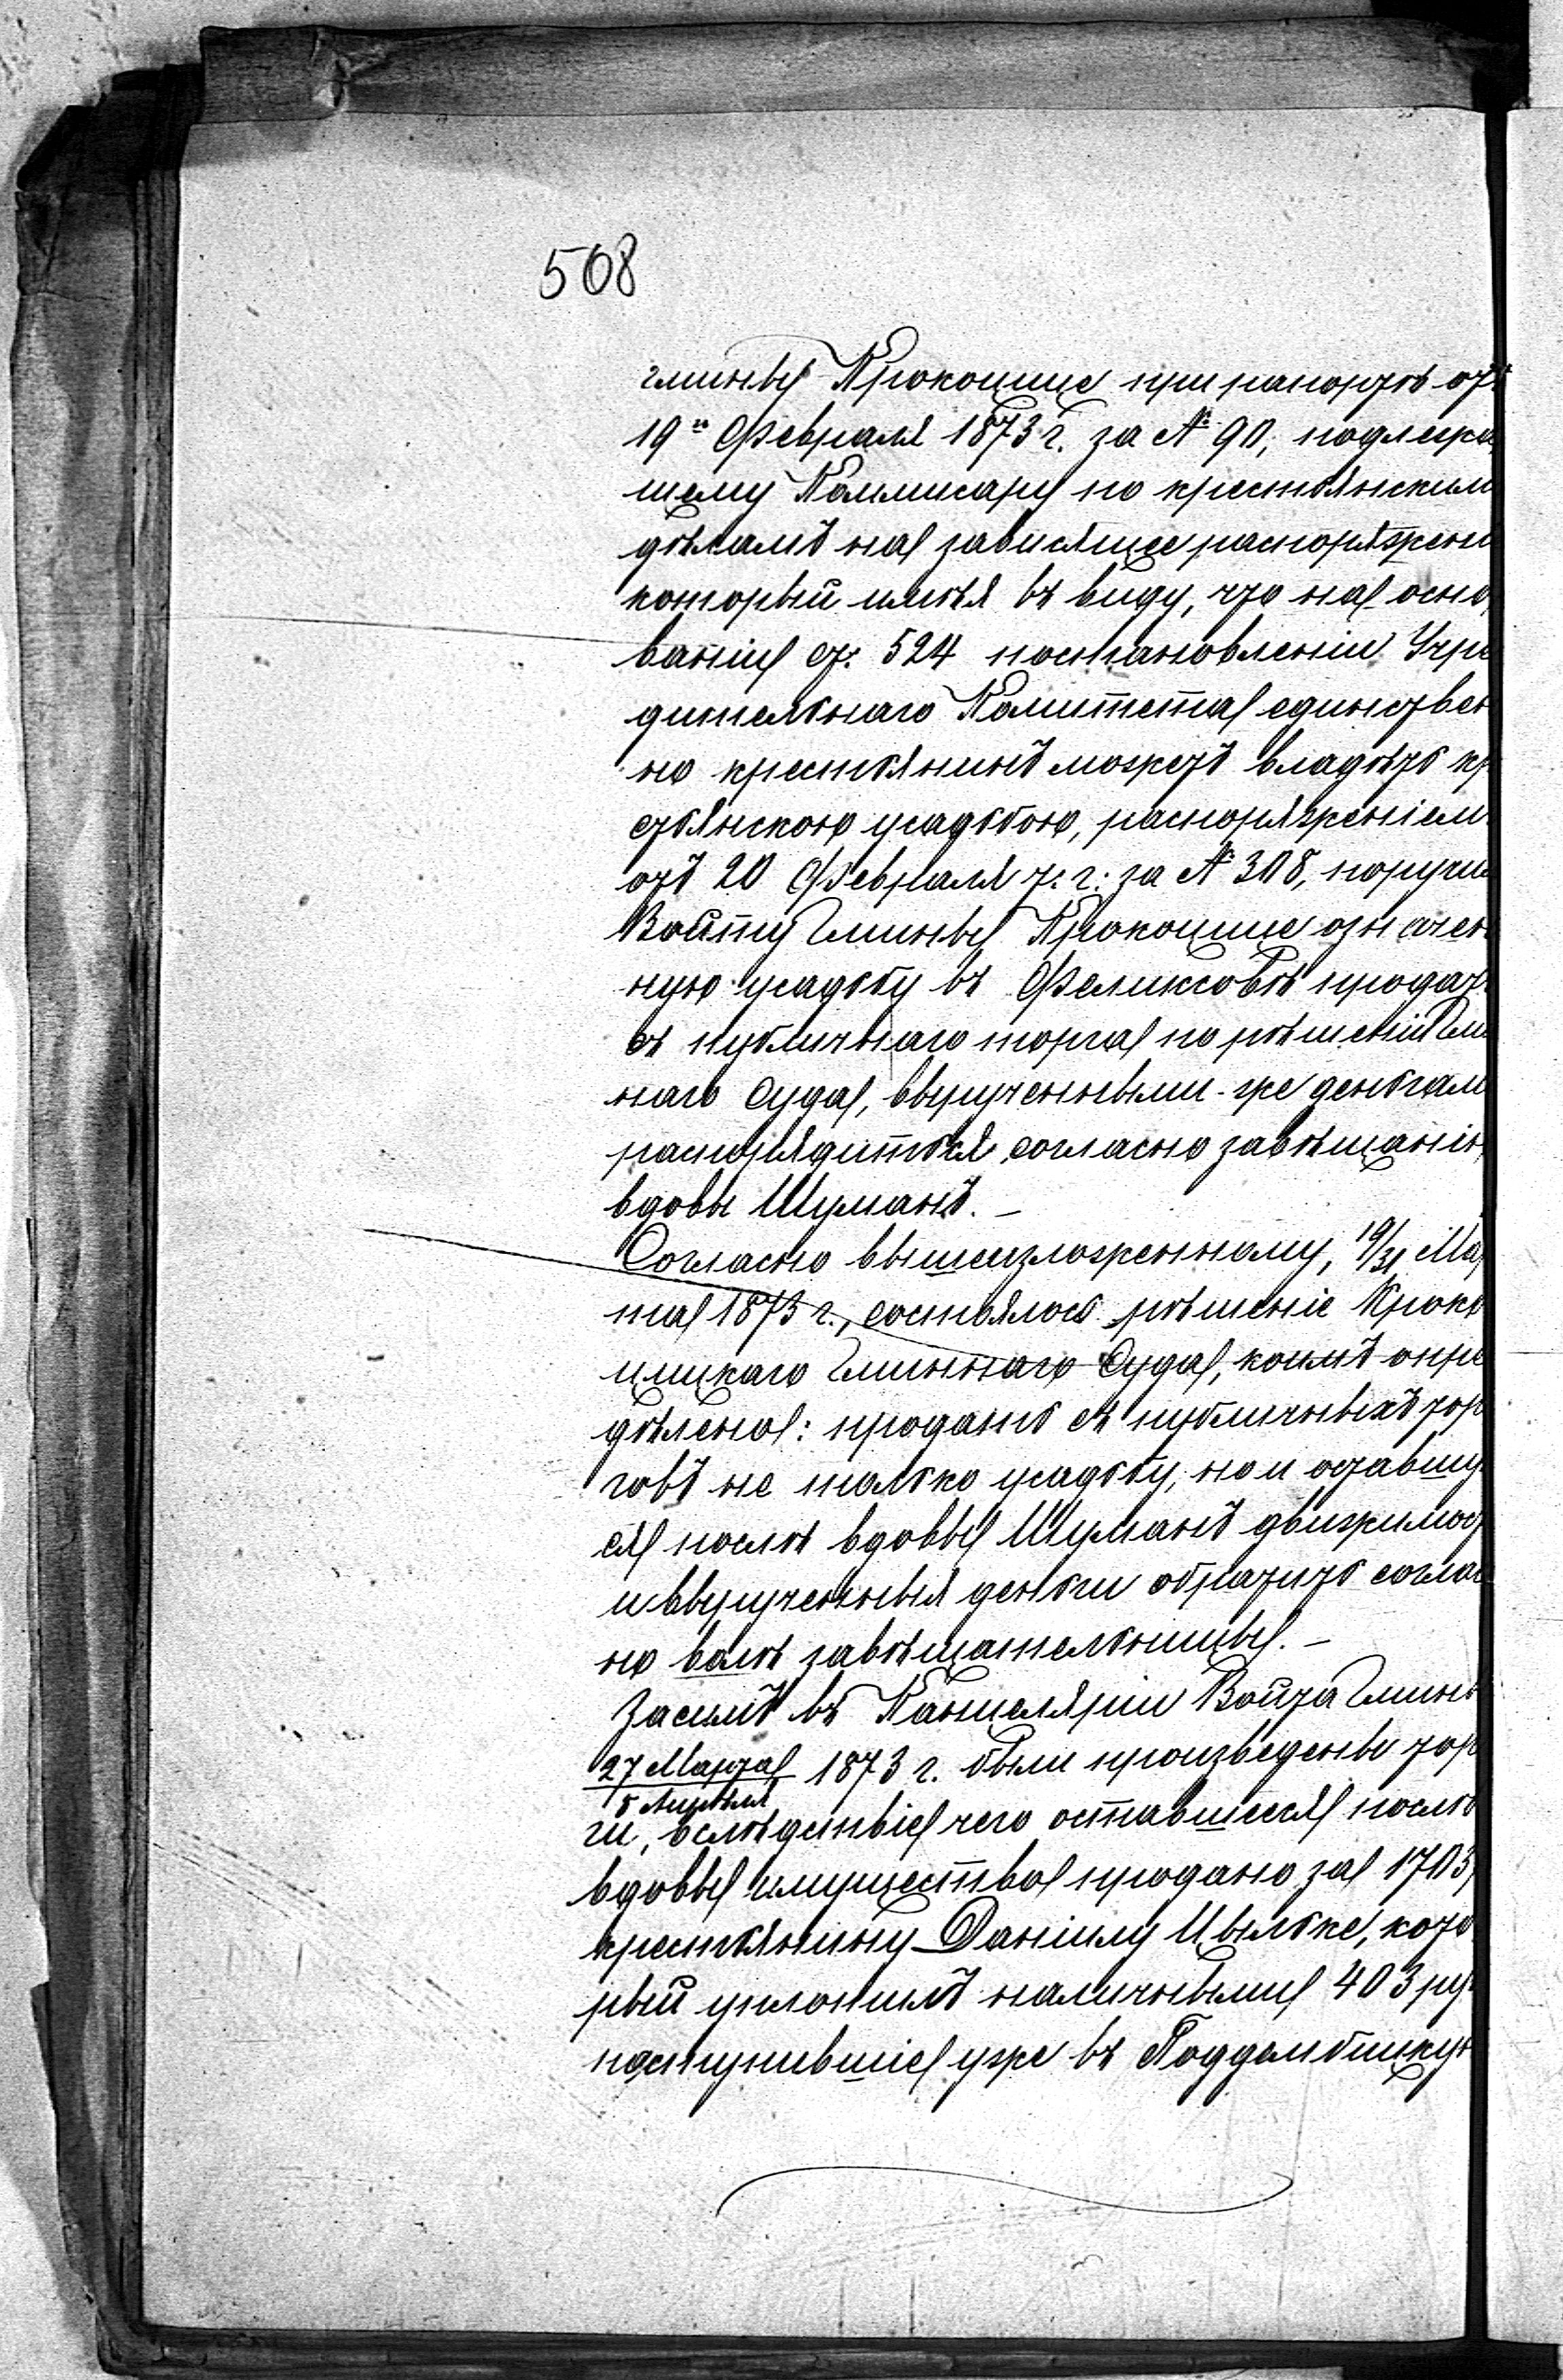 508
гмины Крокоцице при рапортѣ отъ
19го Февраля 1873 г. за № 90, подлежа
щему Коммисару по крестьянскимъ
дѣламъ на зависящее распоряжені
который имѣя въ виду, что на осно
ваніи ст: 524 постановленіи Учре
дительнаго Комитета единствен
но крестьянинъ можетъ владѣть кр
стьянскою усадьбою, распоряженіем
отъ 20 Февраля т: г: за № 308, поручи
Войту Гмины Крокоцице означен
ную усадьбу въ Феликсовѣ продать
съ публичнаго торга по рѣшенію Гми
наго Суда, вырученными-же деньгам
распорядиться согласно завѣщанію
вдовы Шуманъ. —
Согласно вышеизложенному, 19/31 Мар
та 1873 г., состоялось рѣшеніе Кроко
цицкаго Гминнаго Суда, коимъ опре
дѣлено: продать съ публичныхъ тор
говъ не только усадьбу, но и оставшу
ся послѣ вдовы Шуманъ движимост
и вырученныя деньги обратить соглас
но волѣ завѣщательницы. —
Засимъ въ Канцеляріи Войта Гмины
27 Марта / 8 Апрѣля 1873 г. были произведены тор
ги, вслѣдствіе чего оставшееся послѣ
вдовы имущество продано за 1703
крестьянину Даніилу Цвыльке, кото
рый уплотилъ наличными 403 руб
поступившіе уже въ Поддембицкую